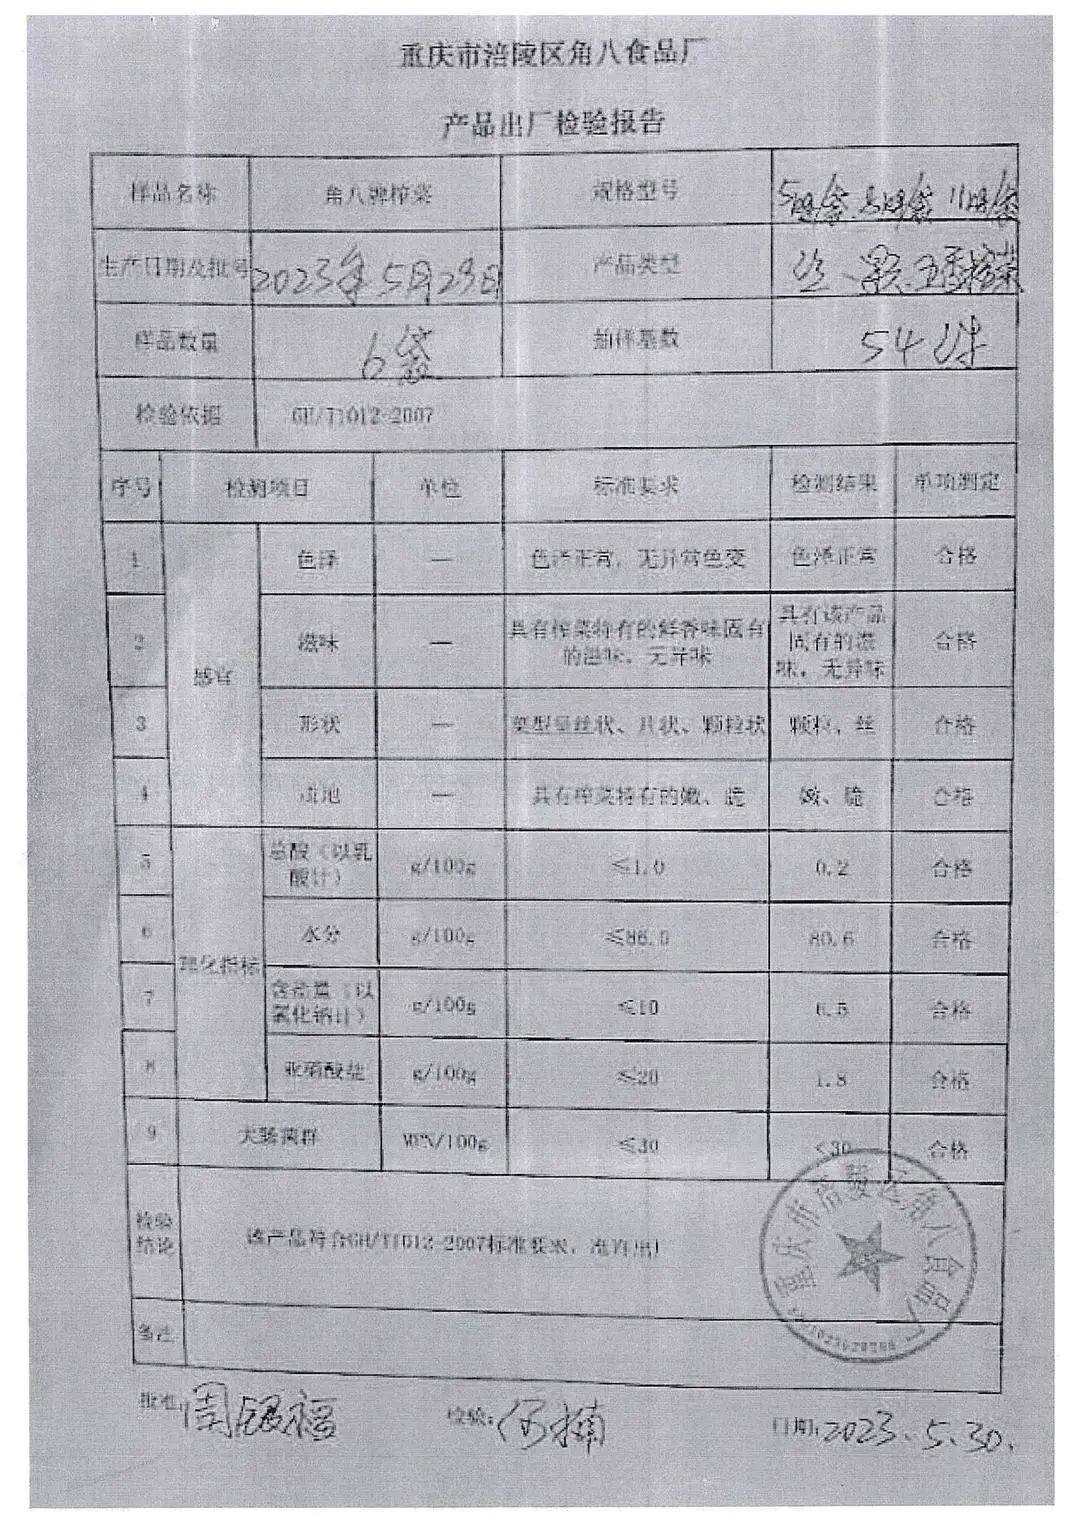 重庆市涪陵区角八食品厂
产品出厂检验报告
样品名称 角八牌榨菜 规格型号
生产日期及批号 2023年5月29日 产品类型 丝、颗、
样品数量 6袋 抽样基数 54件
检验依据 GH/T1012-2007
序号 检测项目 单位 标准要求 检测结果 单项测定
感官
1 色泽 — 色泽正常，无异常色变 色泽正常 合格
2 滋味 — 具有榨菜特有的鲜香味固有
的滋味，无异味 具有该产品
固有的滋
味，无异味 合格
3 形状 — 菜型呈丝状、片状、颗粒状 颗粒，丝 合格
4 质地 — 具有榨菜特有的嫩、脆 嫩、脆 合格
理化指标
5 总酸（以乳
酸计） g/100g ≤1.0 0.2 合格
6 水分 g/100g ≤86.0 80.6 合格
7 含盐量（以
氯化钠计） g/100g ≤10 6.5 合格
8 亚硝酸盐 g/100g ≤20 1.8 合格
9 大肠菌群 MPN/100g ≤30 <30 合格
检验
结论 该产品符合GH/T1012-2007标准要求，准许出厂
备注
重庆市涪陵区角八食品厂
批准：周银福 检验：何楠 日期：2023.5.30.